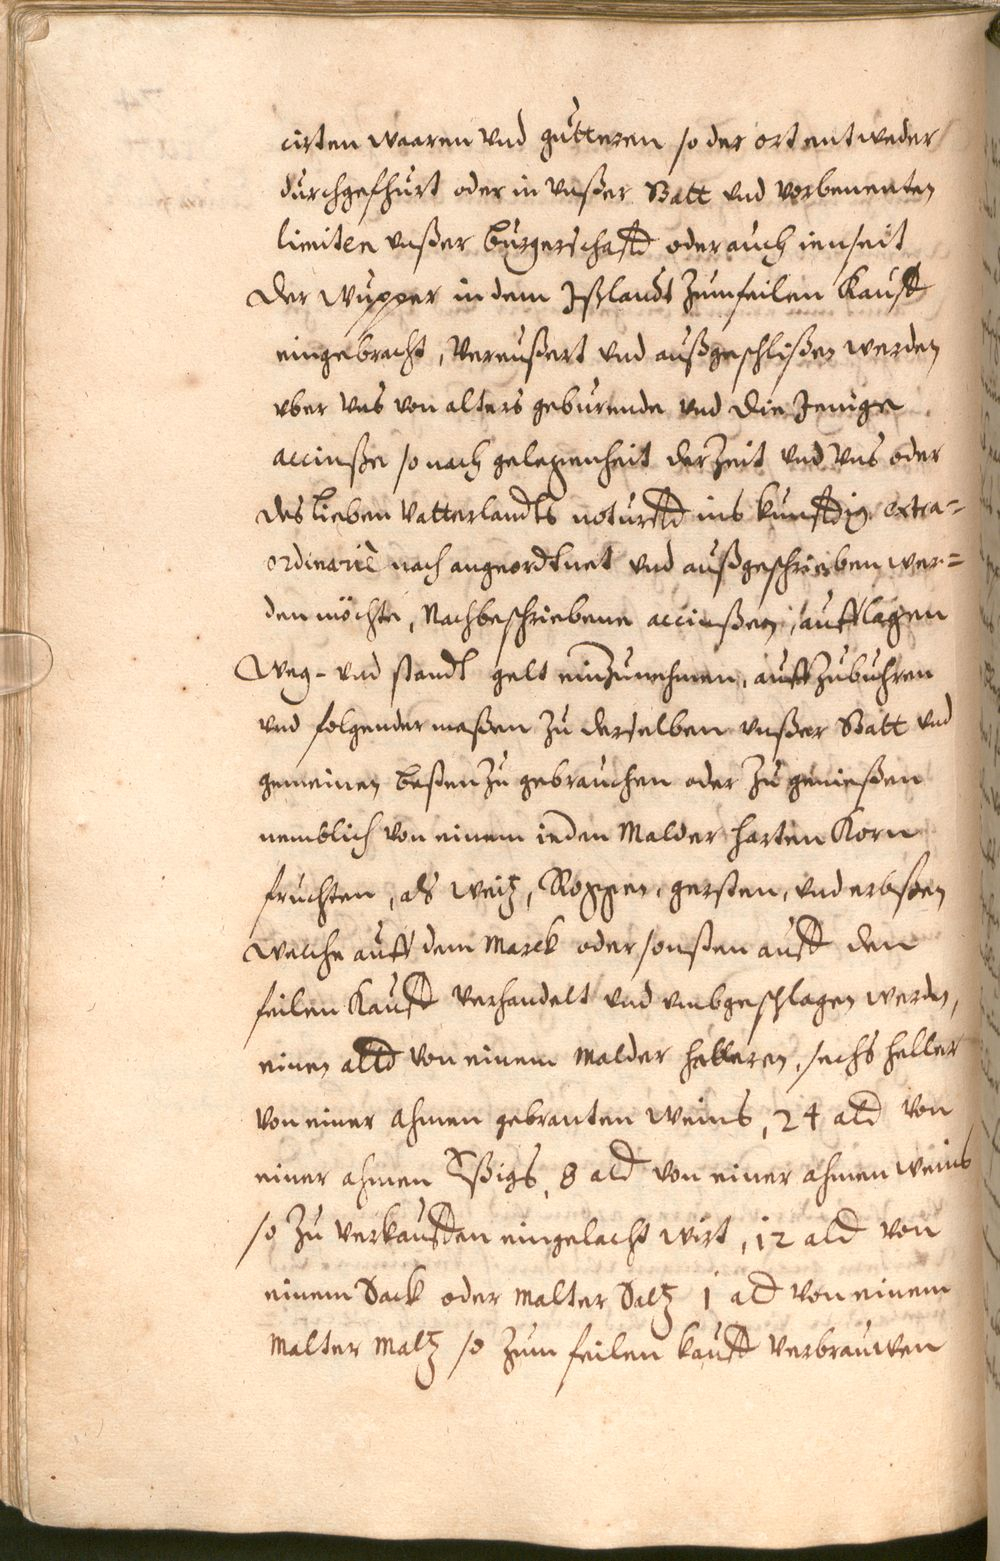 cirten waaren vnd gütteren so der ort entweder
dürchgefhürt oder in vnßer Statt vnd vorbenenten
limiten vnßer bürgerschafft oder auch ienseit
der Wupper in dem Ißlandt zum feilen Kauff
eingebracht, vereußert vnd außgeschlißen werden
vber vns von alters gebürende vnd die Jenige
accinßen so nach gelegenheit der Zeit vnd vns oder
des lieben Vatterlandts notürfft ins künfftig extra=
ordinarie nach angeordtnet vnd außgeschrieben wer=
den möchte, Nachbeschriebene accinßen, aufflagen
Weg- vnd standt gelt einzunehmen, auffzubuhren
vnd folgender maßen zu derselben vnßer Statt vnd
gemeinen besten zu gebrauchen oder zu genießen
nemblich von einem ieden Malder harten Korn
früchten, als weitz, Roggen, gersten, vnd erbßen
welche auff dem Marck oder sonsten auff den
feilen Kauff verhandelt vnd vmbgeschlagen werden,
einen alb von einem Malder haberen, sechs heller
von einer ahmen gebranten weins, 24 alb von
einer ahmen Eßigs, 8 alb von einer ahmen weins
so zu verkauffen eingelacht wirt, 12 alb von
einem Sack oder Malter Saltz 1 alb von einem
Malter Maltz so zum feilen kauff verbrauwen